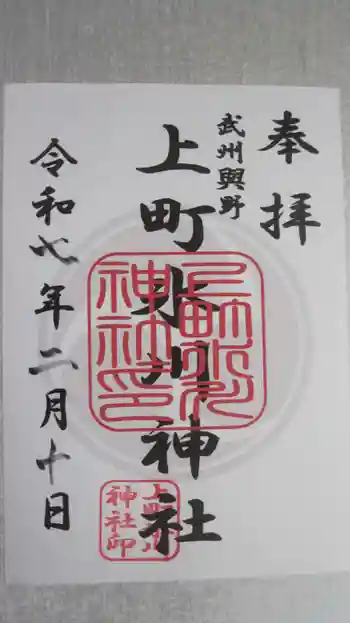 奉拝
武州與野
上町氷川神社
令和七年二月十日
上町氷川
神社印
上町氷川
神社印